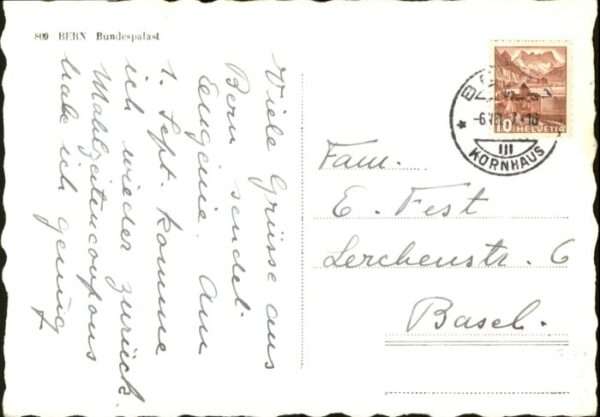 809 BERN Bundespalast
Viele Grüsse aus
Bern sendet
Eugénie. Am
1. Sept. komme
ich wieder zurück.
Mahlzeitencoupons
habe ich genug
10 HELVETIA
III
KORNHAUS
Fam.
E. Fest
Lerchenstr. 6
Basel.